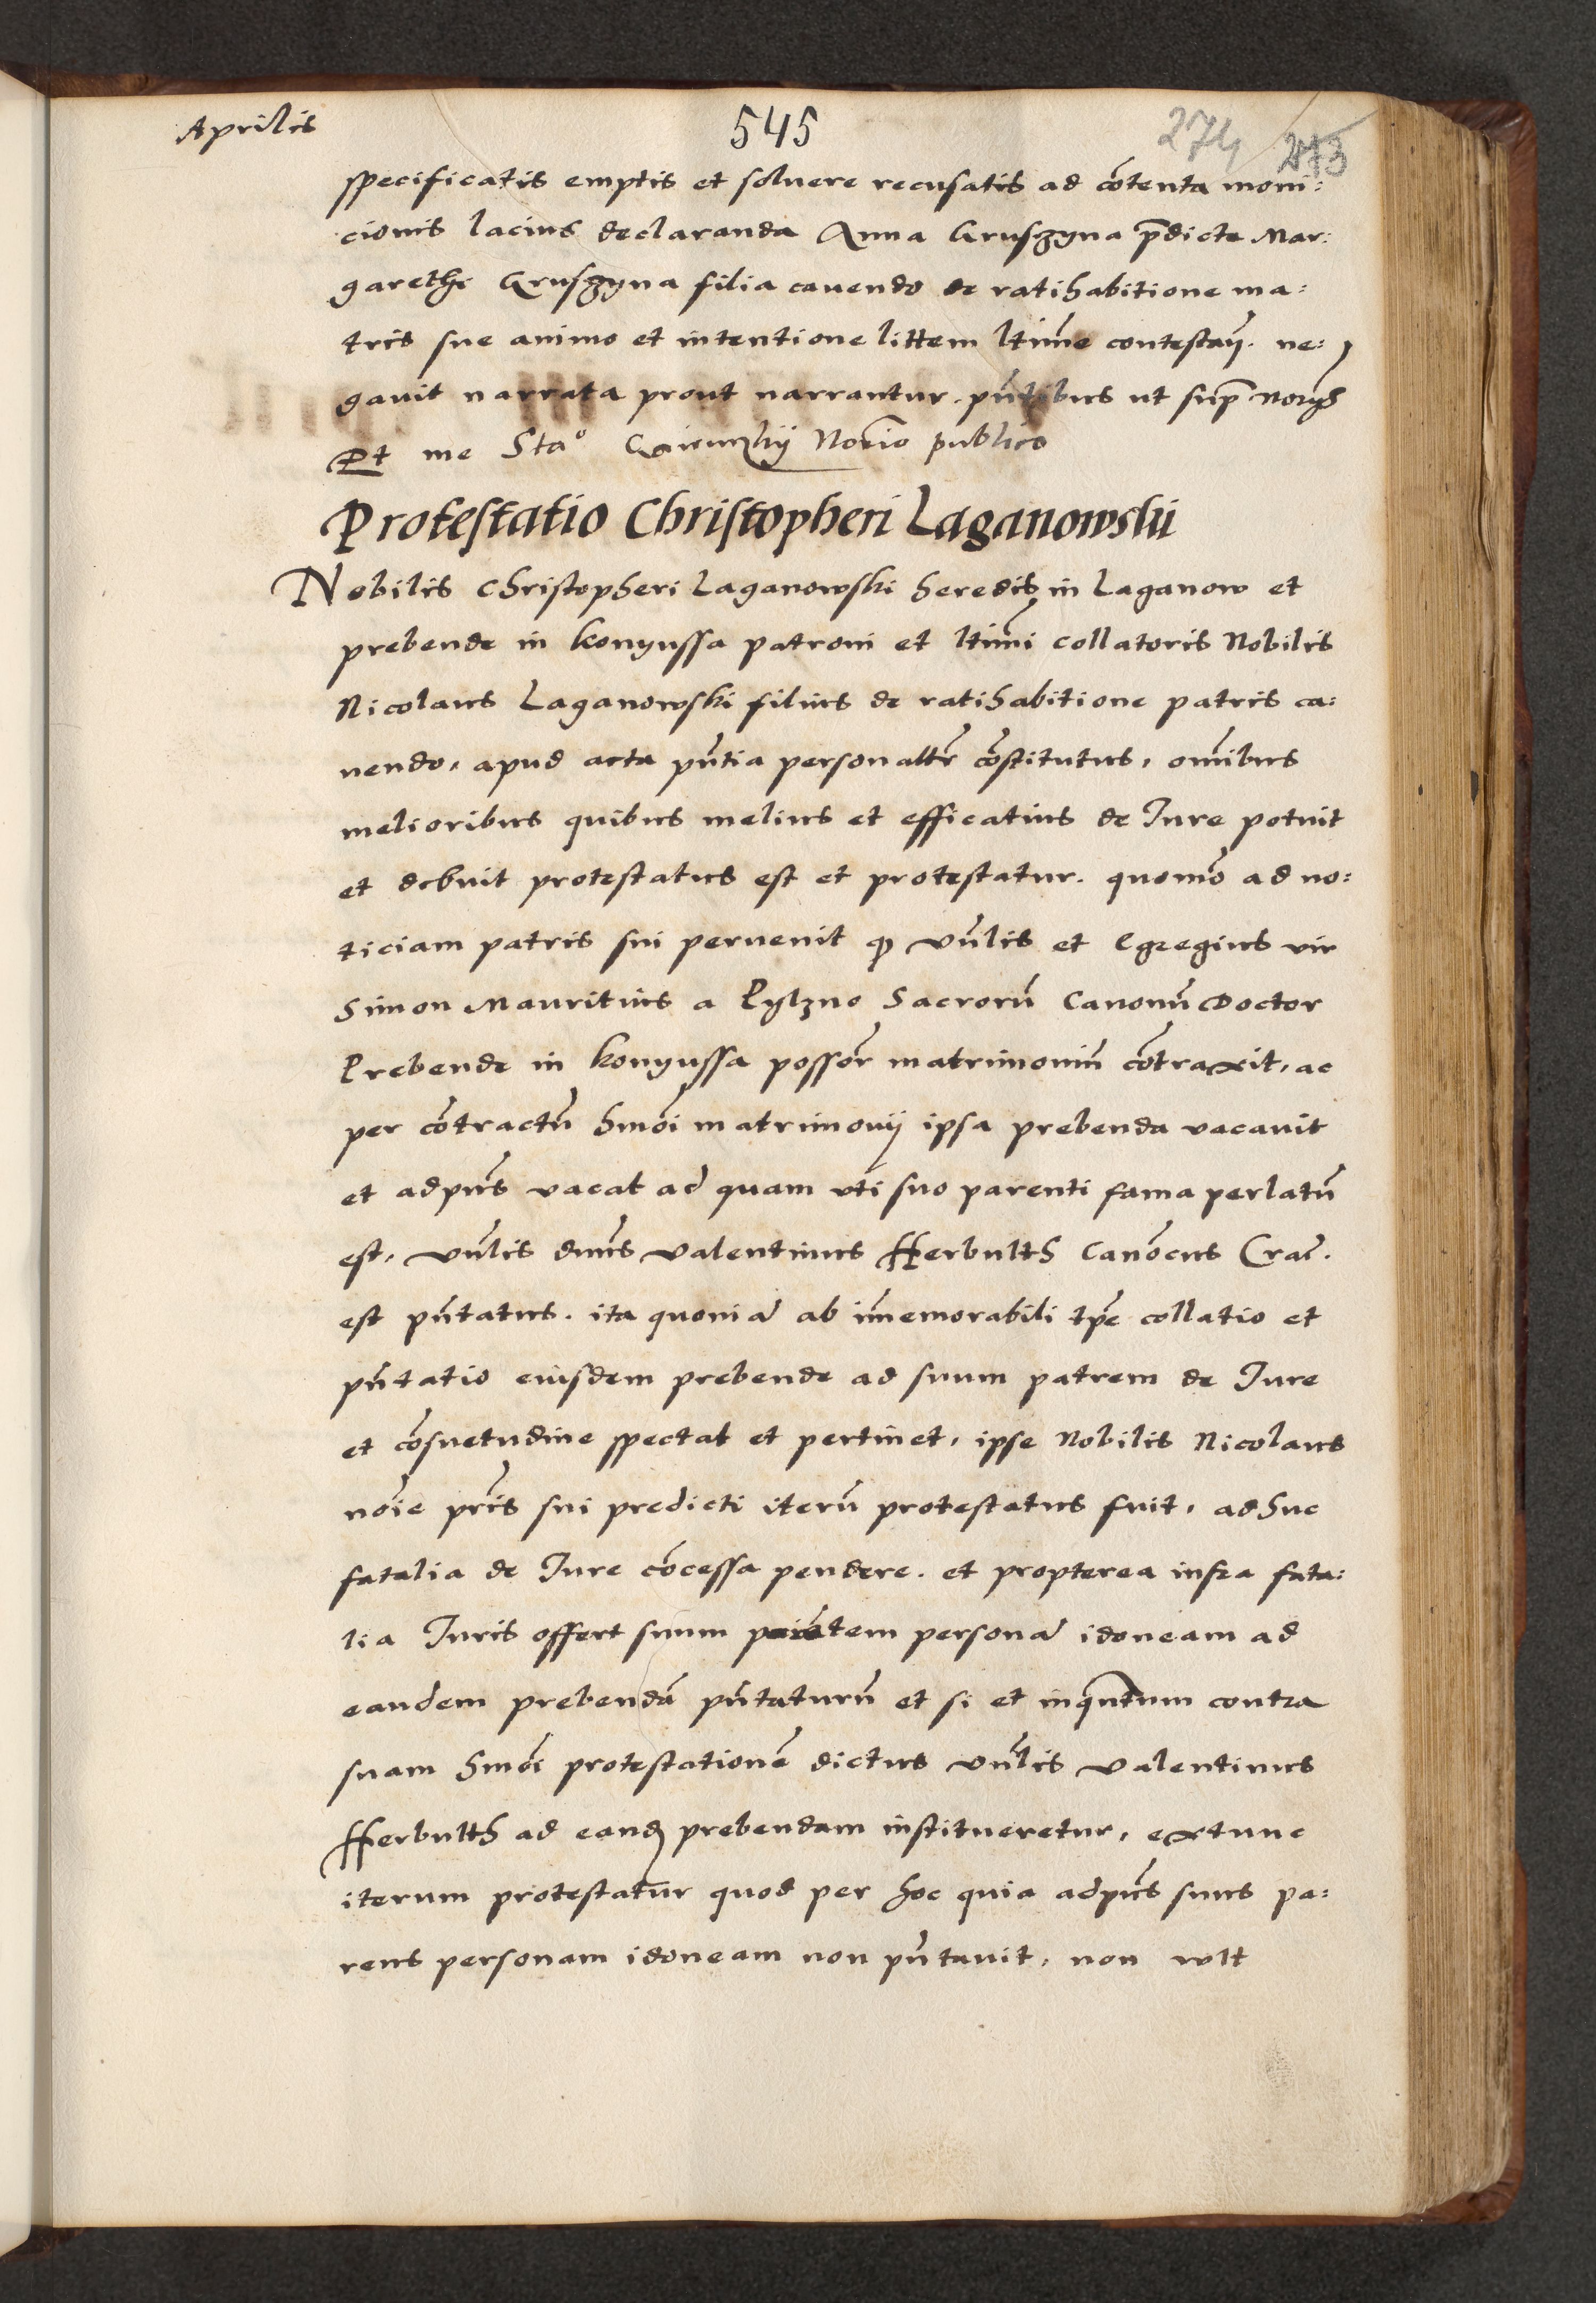 Aprilis
545
274 273
specificatis emptis et soluere recusatis ad cōtenta moni:
cionis lacius declaranda Anna Gruszyna p̄dicte Mar:
garethe Gruszyna filia cauendo de ratihabitione ma:
tris sue animo et intentione littem ltime contestan̄. ne:
gauit narrata prout narrantur. pn̄tibus ut sup̄ norijs
Et me Sta° Notrio publico
Protestatio Christopheri Laganowski
Nobilis Christopheri Laganowski heredis in Laganow et
prebende in konyussa patroni et ltimi collatoris Nobilis
Nicolaus Laganowski filius de ratihabitione patris ca:
uendo, apud acta pn̄tia personaltr̄ cōstitutus, om̄ibus
melioribus quibus melius et efficatius de Iure potuit
et debuit protestatus est et protestatur. quomō ad no:
ticiam patris sui peruenit ꝙ vn̄lis et Egregius vir
Simon Mauritius a Pylzno Sacrorū Canonū Doctor
Prebende in konyussa possor̄ matrimoniū cōtraxit, ac
per cōtractū hmōi matrimonij ipsa prebenda vacauit
et adpn̄s vacat ad quam vti suo parenti fama perlatū
est, vn̄lis dn̄us Valentinus Herbulth Canōcus Crac̄.
est pn̄tatus. ita quoniā ab īmemorabili tp̄e collatio et
pn̄tatio eiusdem prebende ad suum patrem de Iure
et cōsuetudine spectat et pertinet, ipse Nobilis Nicolaus
noīe pr̄is sui predicti iterū protestatus fuit, adhuc
fatalia de Iure cōcessa pendere. et propterea infra fata:
lia Iuris offert suum personā idoneam ad
eandem prebendā pn̄taturū et si et inqn̄tum contra
suam hmōi protestationē dictus vn̄lis Valentinus
Herbulth ad eandꝫ prebendam institueretur, extunc
iterum protestatur quod per hoc quia adpn̄s suus pa:
rens personam idoneam non pn̄tauit, non wlt